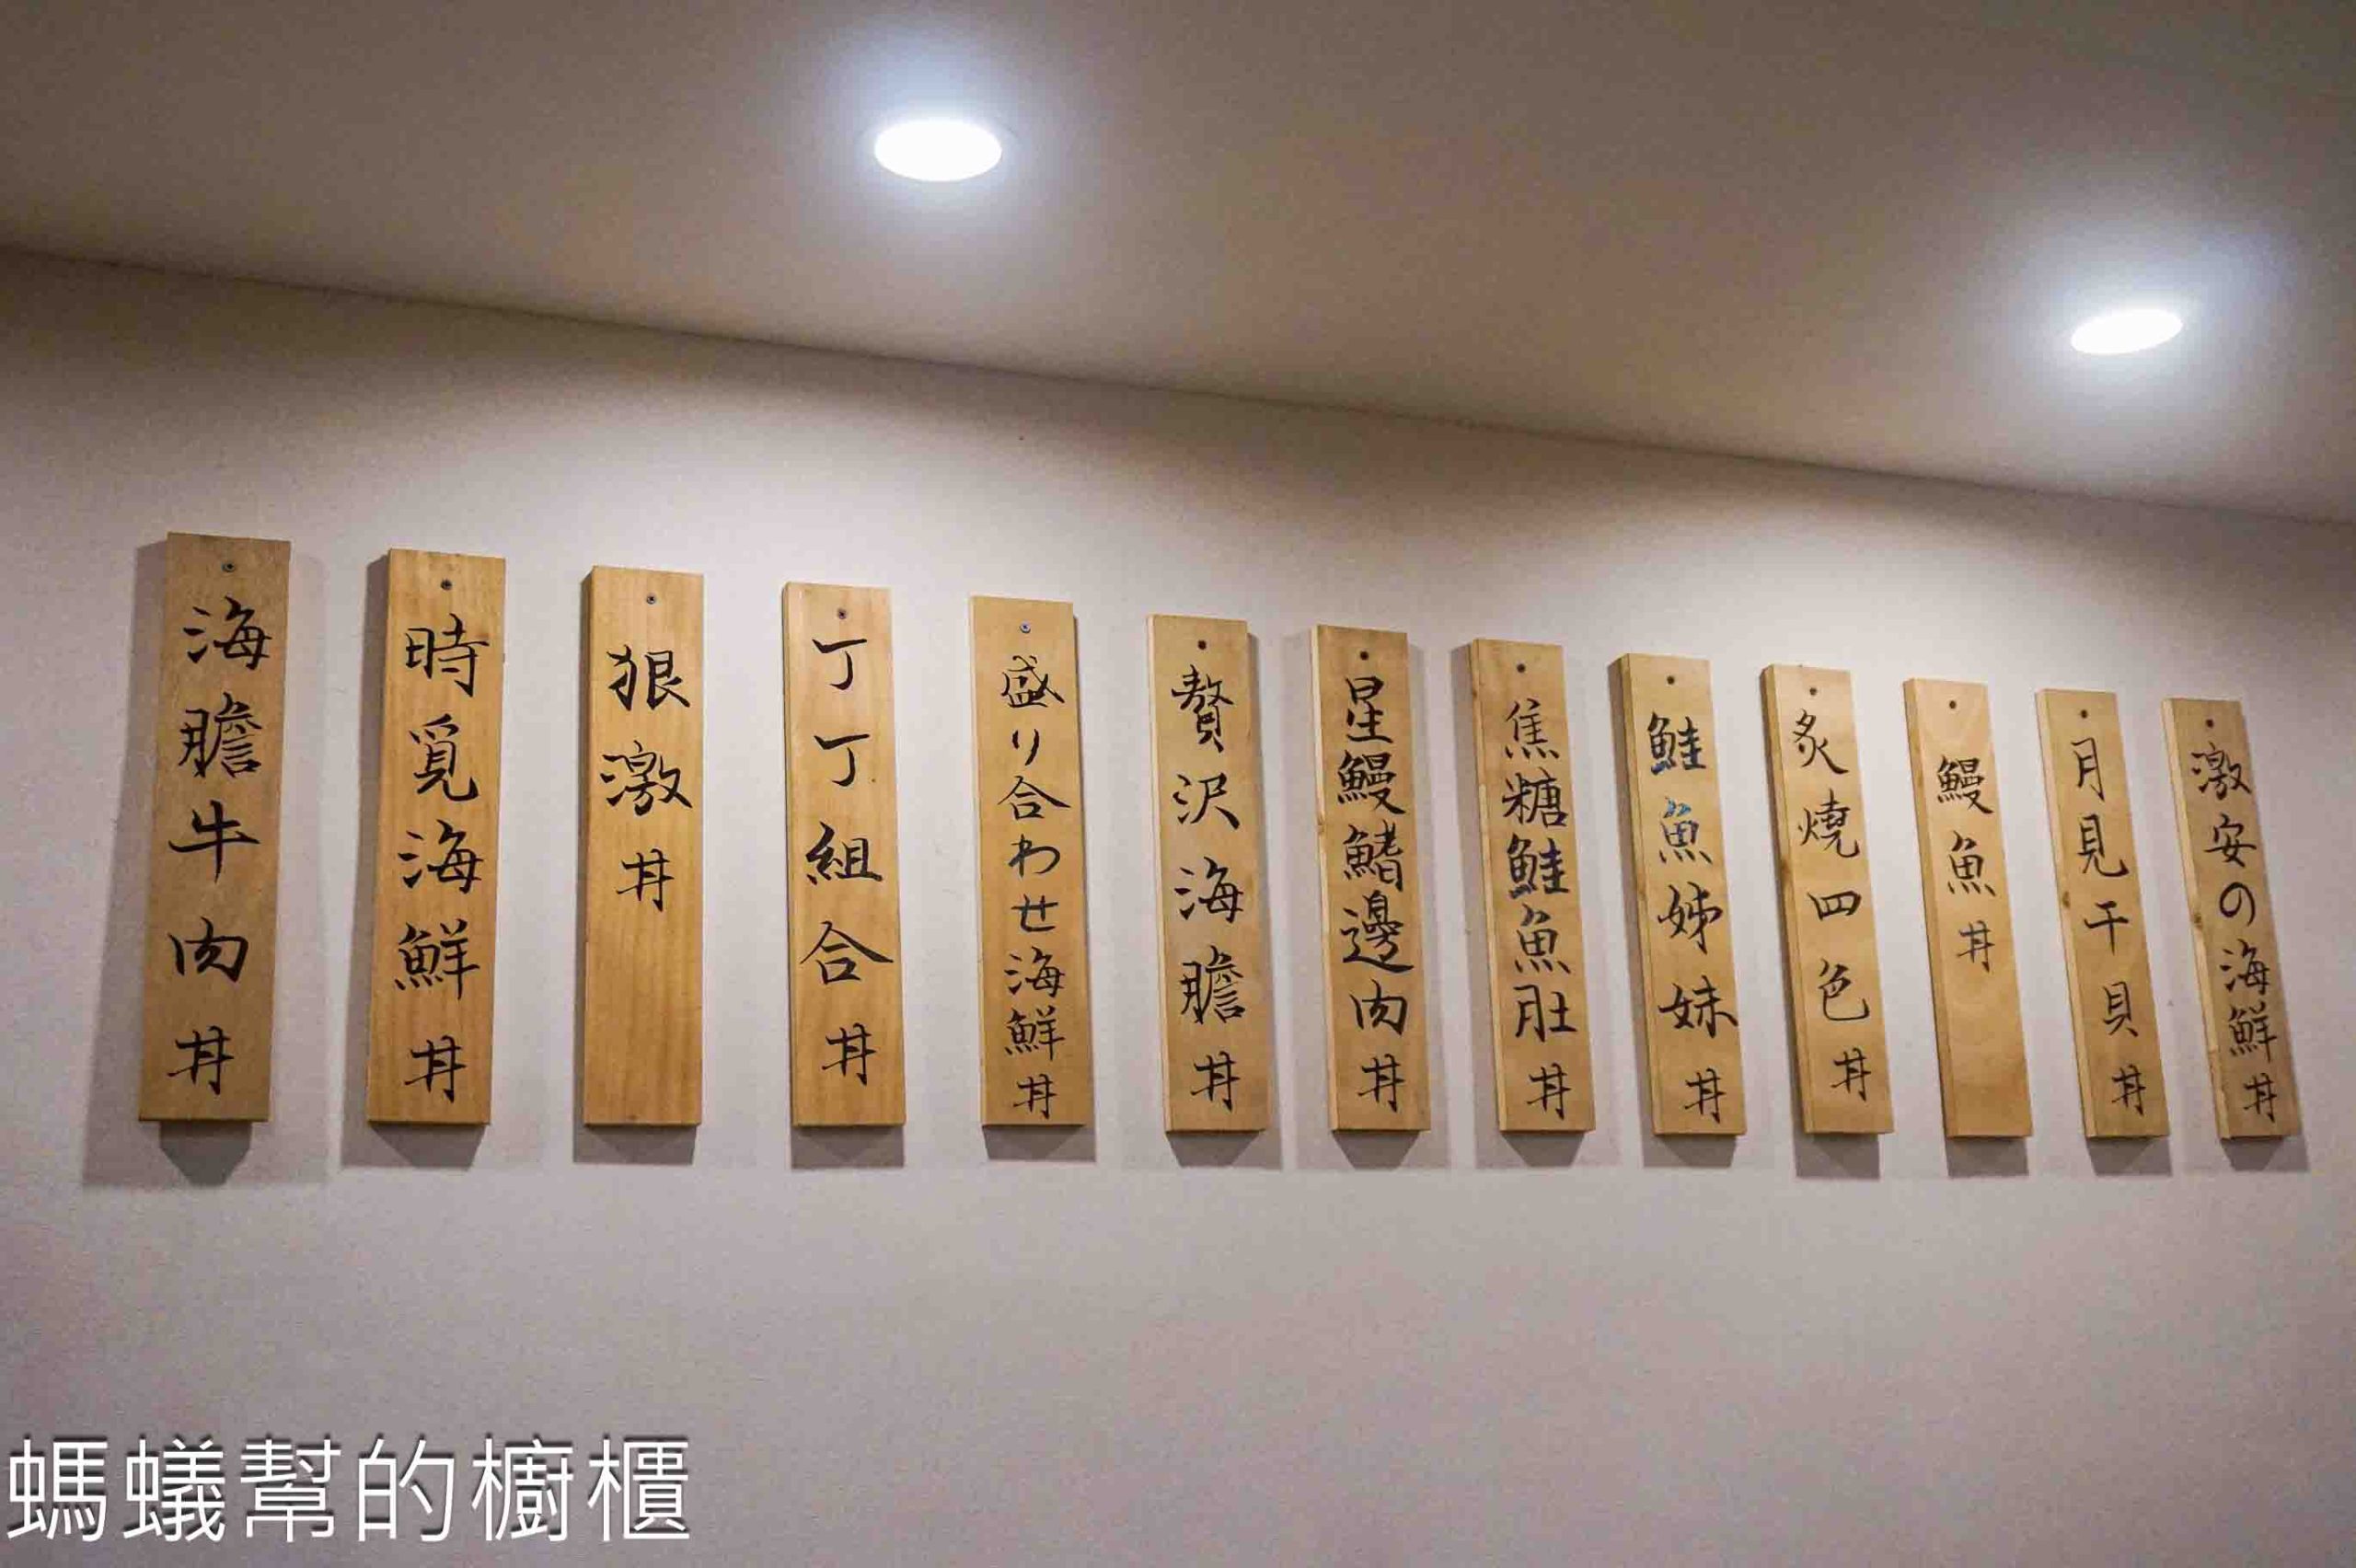 海膽牛肉丼
時覓海鮮丼
狠激丼
丁丁組合丼
盛り合わせ海鮮丼
贅沢海膽丼
星鰻鰭邊肉丼
焦糖鮭魚肚丼
鮭魚姊妹丼
炙燒四色丼
鰻魚丼
月見干貝丼
激安の海鮮丼
螞蟻幫的櫥櫃